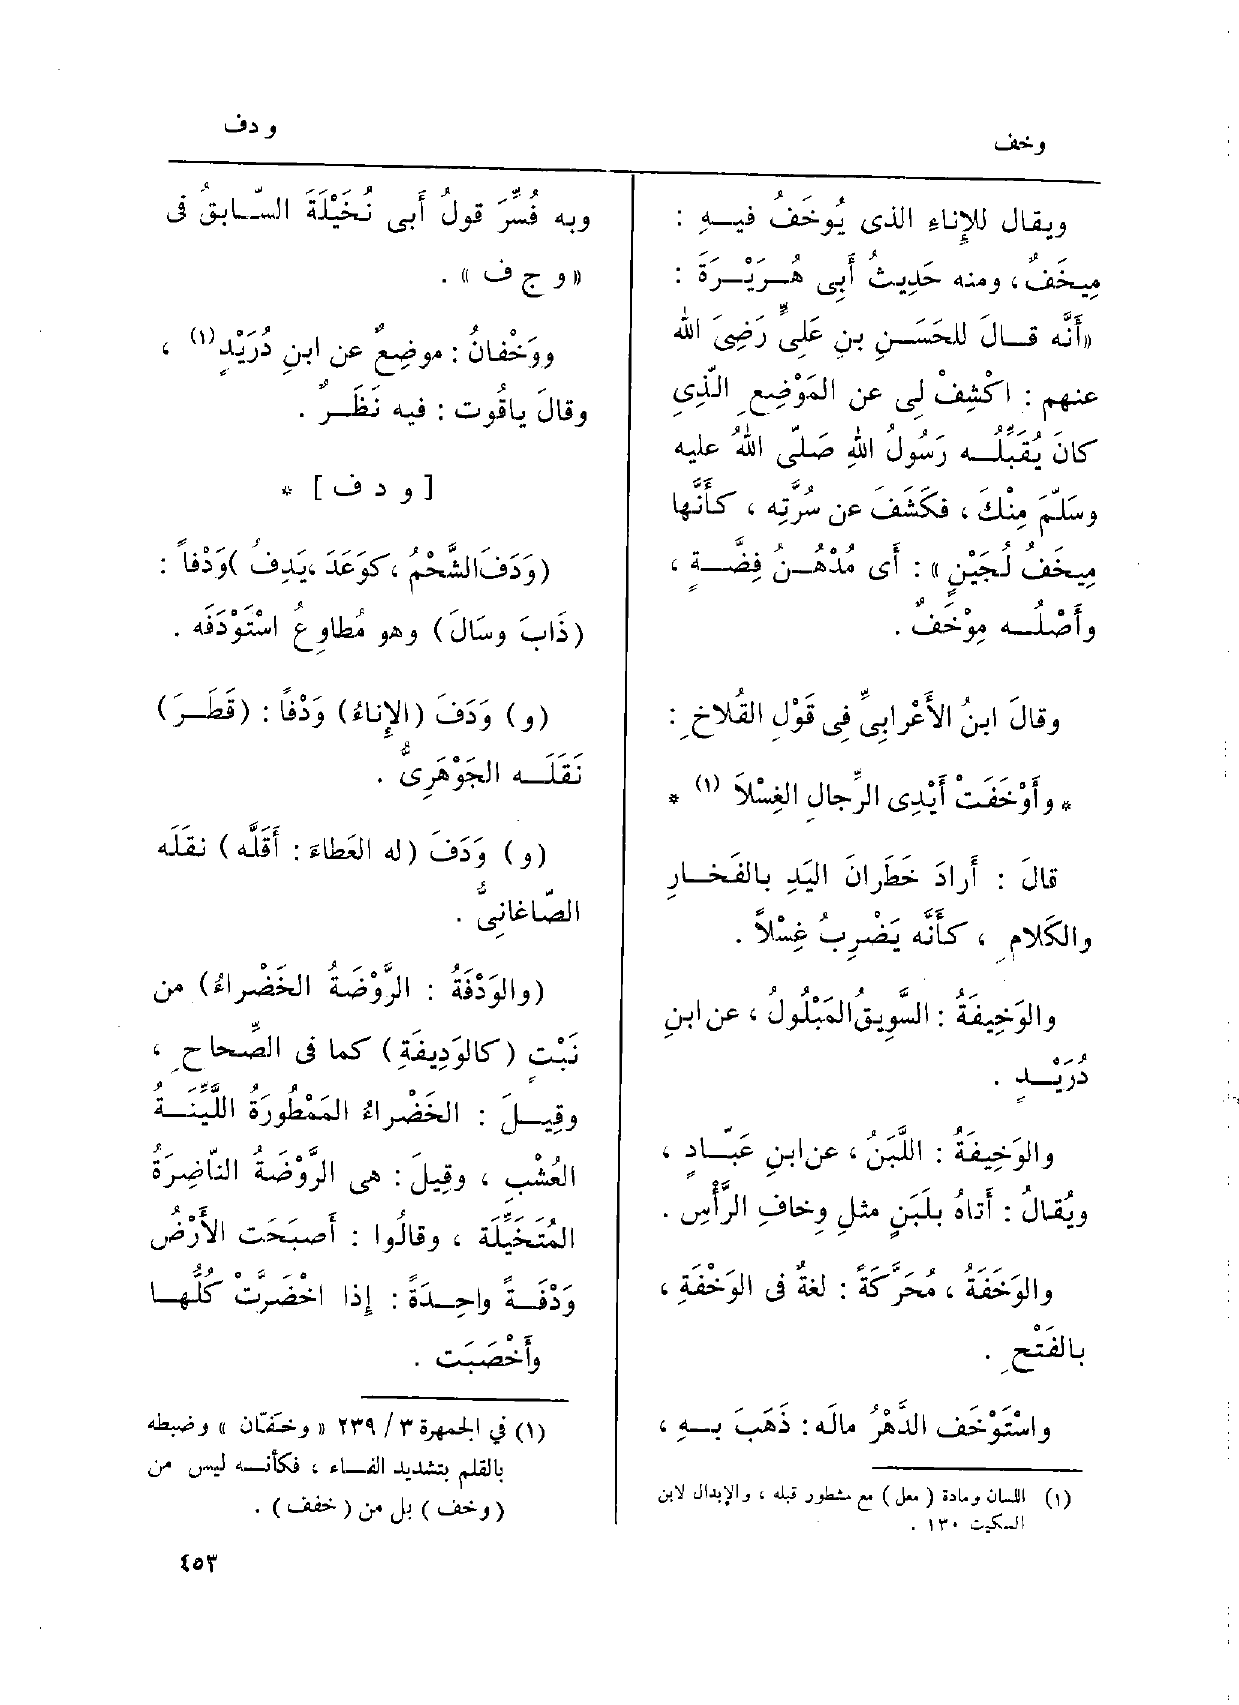 وخف
ودف
ويقال للإِناء الذى يُوخَفُ فيـهِ :
مِيـخَفٌ ، ومنه حَدِيثُ أَبِى هُـرَيْـرَةَ :
«أَنَّه قـالَ للحَسَـنِ بنِ عَلِىٍّ رَضِىَ اللّٰه
عنهم : اكْشِفْ لِى عن المَوْضِعِ الَّذِى
كانَ يُقَبِّلُـه رَسُولُ اللهِ صَلَّى اللهُ عليه
وسَلَّمَ مِنْكَ ، فكَشَفَ عن سُرَّتِه ، كأَنَّها
مِيخَفُ لُجَيْنٍ » : أَى مُدْهُـنُ فِضَّـةٍ ،
وأَصْلُـه مِوْخَفٌ .
وقالَ ابنُ الأَعْرابِىِّ فِى قَوْلِ القُلاخِ :
* وأَوْخَفَتْ أَيْدِى الرِّجالِ الغِسْلاَ (١) *
قالَ : أَرادَ خَطَرانَ اليَدِ بالفَخـارِ
والكَلامِ ، كأَنَّه يَضْرِبُ غِسْلاً .
والوَخِيفَةُ : السَّوِيقُ المَبْلُولُ ، عن ابنِ
دُرَيْـدٍ .
والوَخِيفَةُ : اللَّبَنُ ، عن ابنِ عَبَّـادٍ ،
ويُقـالُ : أَتاهُ بلَبَنٍ مثلِ وِخافِ الرَّأْسِ .
والوَخَفَةُ ، مُحَرَّكَةً : لغةٌ فى الوَخْفَةِ ،
بالفَتْحِ .
واسْتَوْخَف الدَّهْرُ مالَه : ذَهَبَ بـهِ ،
(١) اللسان ومادة ( معل ) مع مشطور قبله ، والإبدال لابن
السكيت ١٣٠ .
وبه فُسِّرَ قولُ أَبى نُخَيْلَةَ السّـابقُ فى
«و ج ف» .
ووَخْفانُ : موضِعٌ عن ابنِ دُرَيْدٍ(١) ،
وقالَ ياقُوت : فيه نَظَـرٌ .
[ و د ف ] *
(وَدَفَ الشَّحْمُ ، كوَعَدَ ، يَدِفُ ) وَدْفاً :
(ذَابَ وسَالَ) وهو مُطاوِعُ اسْتَوْدَفَه .
(و) وَدَفَ (الإِناءُ) وَدْفًا : (قَطَـرَ)
نَقَلَـه الجَوْهَرِىُّ .
(و) وَدَفَ (له العَطاءَ : أَقَلَّه ) نقَلَه
الصّاغانِىُّ .
(والوَدْفَةُ : الرَّوْضَةُ الخَضْراءُ) من
نَبْتٍ (كالوَدِيفَةِ) كما فى الصِّحاحِ ،
وقِيـلَ : الخَضْراءُ المَمْطُورَةُ اللَّيِّنَـةُ
العُشْبِ ، وقِيلَ : هى الرَّوْضَةُ النّاضِرَةُ
المُتَخَيِّلَة ، وقالُوا : أَصبَحَت الأَرْضُ
وَدْفَـةً واحِـدَةً : إِذا اخْضَرَّتْ كُلُّهـا
وأَخْصَبَت .
(١) في الجمهرة ٣ / ٢٣٩ « وخَفّان » وضبطه
بالقلم بتشديد الفـاء ، فكأنـه ليس من
(وخف) بل من (خفف) .
٤٥٣